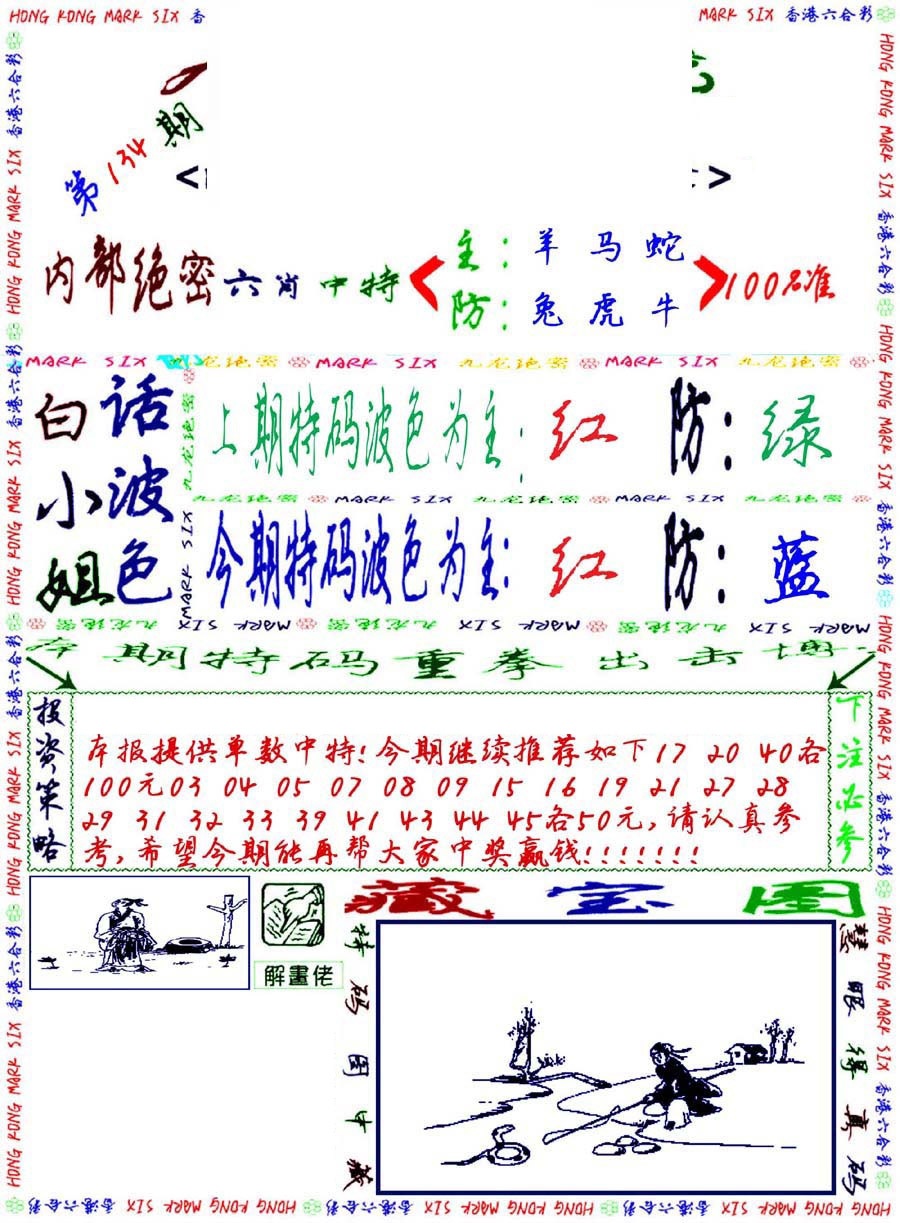 HONG KONG MARK SIX 香
MARK SIX 香港六合彩
第134期
< >
内部绝密六肖中特
主：羊 马 蛇
防：兔 虎 牛
100%准
MARK SIX 九龙绝密 MARK SIX 九龙绝密 MARK SIX 九龙绝密
白话
小波
姐色
上期特码波色为主：红 防：绿
九龙绝密 MARK SIX 九龙绝密 MARK SIX 九龙绝密
今期特码波色为主：红 防：蓝
九龙绝密 MARK SIX 九龙绝密 MARK SIX 九龙绝密 MARK SIX
本期特码重拳出击博
投资策略
本报提供单数中特!今期继续推荐如下17 20 40各
100元03 04 05 07 08 09 15 16 19 21 27 28
29 31 32 33 39 41 43 44 45各50元,请认真参
考,希望今期能再帮大家中奖赢钱!!!!!!!
下注必参
解畫佬
藏宝图
特码图中藏
慧眼得真码
HONG KONG MARK SIX 香港六合彩 HONG KONG MARK SIX 香港六合彩 HONG KONG MARK SIX 香港六合彩